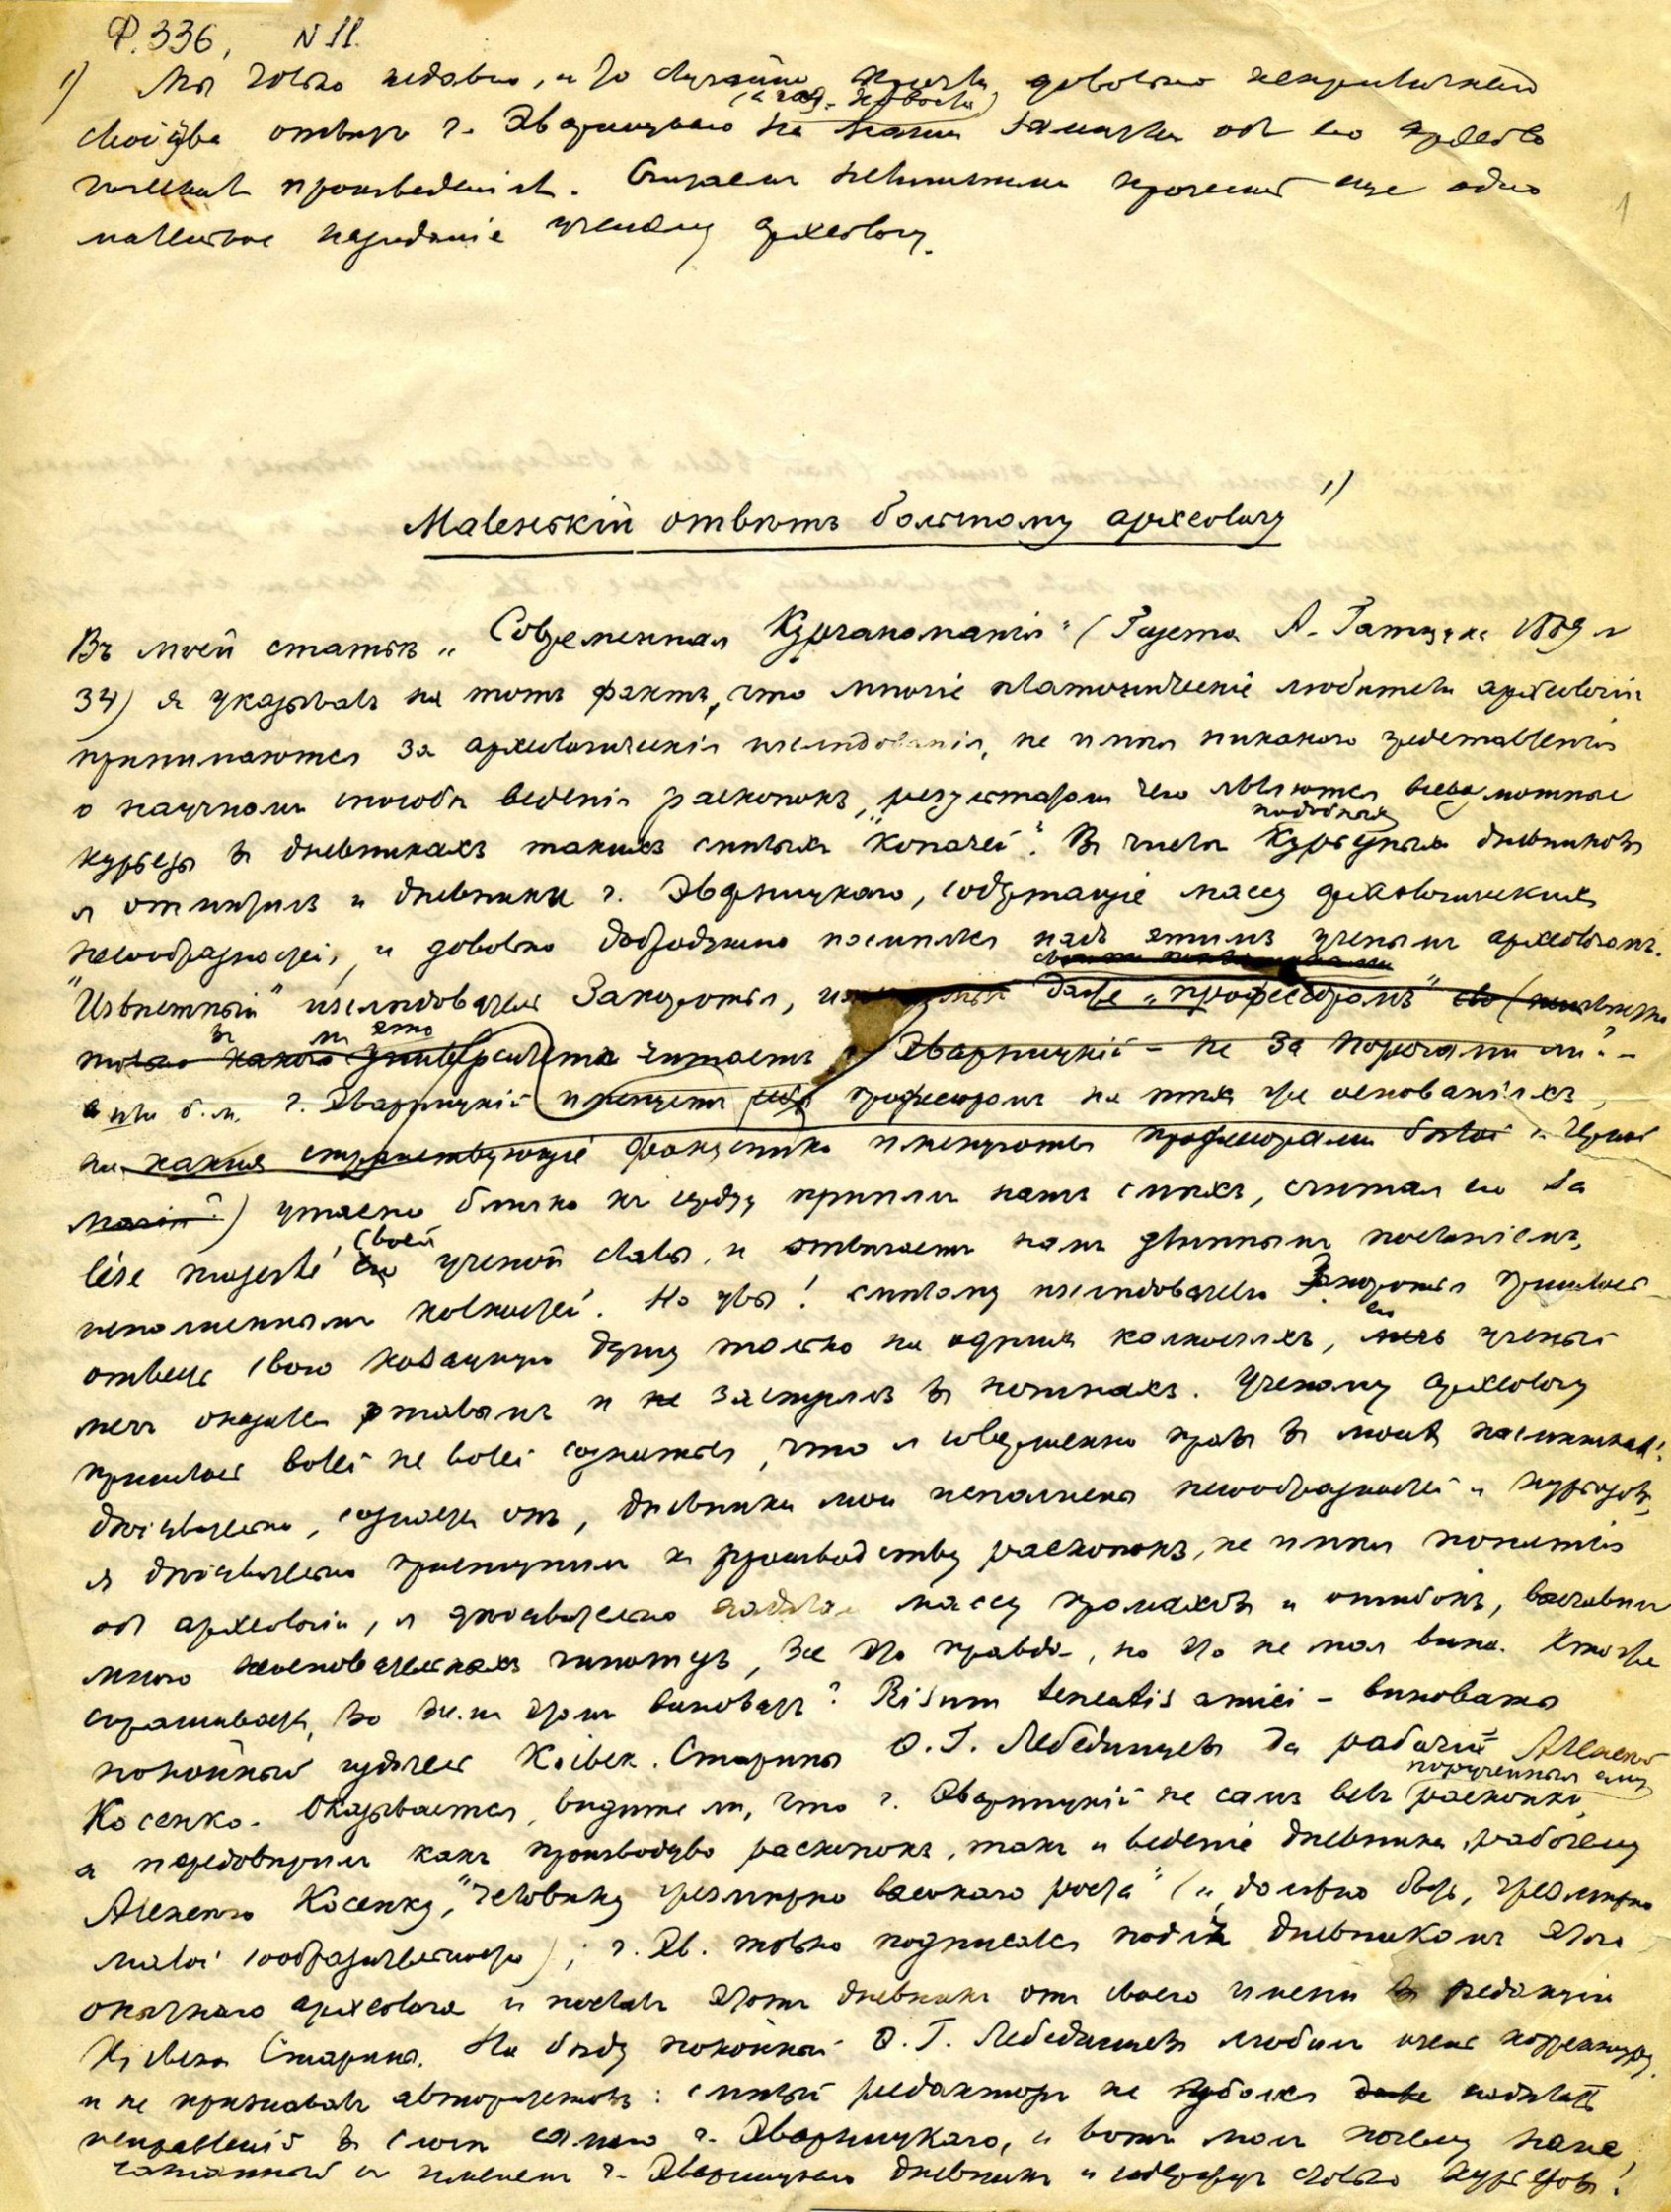 Ф. 336, N 11.
1) Мы только недавно, и то случайно, прочли довольно неприличный
(въ газ. Новости)
свойства отвѣтъ г. Эварницкаго на наши замѣтки объ его археоло-
гическихъ произведеніяхъ. Считаемъ нелишнимъ прочесть еще одно
маленькое назиданіе ученому археологу.
1
Маленькій отвѣтъ большому археологу 1)
Въ моей статьѣ „Современная Кургаманія“ (Газета А. Гатцука 1889 г
34) я указывалъ на тотъ фактъ, что многіе платоническіе любители археологіи
принимаются за археологическія изслѣдованія, не имѣя никакого представленія
о научномъ способѣ веденія раскопокъ, результатомъ чего являются всевозможные
курьезы въ дневникахъ такихъ смѣлыхъ „копачей“. Въ числѣ подобныхъ курьезныхъ дневниковъ
я отмѣтилъ и дневники г. Эварницкаго, содержащіе массу археологическихъ
несообразностей, и довольно добродушно посмѣялся надъ этимъ ученымъ археологомъ.
„Извѣстный“ изслѣдователь Запорожья, даже „профессоромъ“ (неизвѣстно
только университета читаетъ г. Эварницкій – не за порогами ли? –
или б. м. г. Эварницкій именуетъ себя профессоромъ на тѣхъ же основаніяхъ,
на какихъ странствующіе фокусники именуются профессорами бѣлой и черной
магіи?) ужасно близко къ сердцу принялъ нашъ смѣхъ, считая его за
lèse majesté своей ученой славы, и отвѣчаетъ намъ длиннымъ посланіемъ,
исполненнымъ колкостей. Но увы! смѣлому изслѣдователю Запорожья пришлось
отвесть свою козацкую душу только на однихъ колкостяхъ, его ученый
мечъ оказался ржавымъ и застрялъ въ ножнахъ. Ученому археологу
пришлось волей не волей сознаться, что я совершенно правъ въ моихъ насмѣшкахъ:
дѣйствительно, сознается онъ, дневники мои исполнены несообразностей и курьезовъ,
я дѣйствительно приступилъ къ производству раскопокъ, не имѣя понятія
объ археологіи, я дѣйствительно надѣлалъ массу промаховъ и ошибокъ, высказавъ
много неосновательныхъ гипотезъ, все это правда, но это не моя вина. Кто же
спрашивается, во всемъ этомъ виноватъ? Risum teneatis amici – виноваты
покойный издатель Кіевск. Старины Ѳ. Г. Лебединцевъ да рабочій Алексѣй
Косенко. Оказывается, видите ли, что г. Эварницкій не самъ велъ порученныя ему раскопки,
а передовѣрилъ какъ производство раскопокъ, такъ и веденіе дневника рабочему
Алексѣю Косенку, „человѣку чрезмѣрно высокаго роста“ (и, должно быть, чрезмѣрно
малой сообразительности); г. Эв. только подписался подъ дневникомъ этого
опытнаго археолога и послалъ этотъ дневникъ отъ своего имени въ редакцію
Кіевской Старины. На бѣду покойный Ѳ. Г. Лебединцевъ любилъ очень корректуру
и не признавалъ авторитетовъ: смѣлый редакторъ не убоялся надѣлать
исправленій въ слогѣ самого г. Эварницкаго, и вотъ молъ почему напе-
чатанный съ именемъ г. Эварницкаго дневникъ и содержитъ столько курьезовъ!